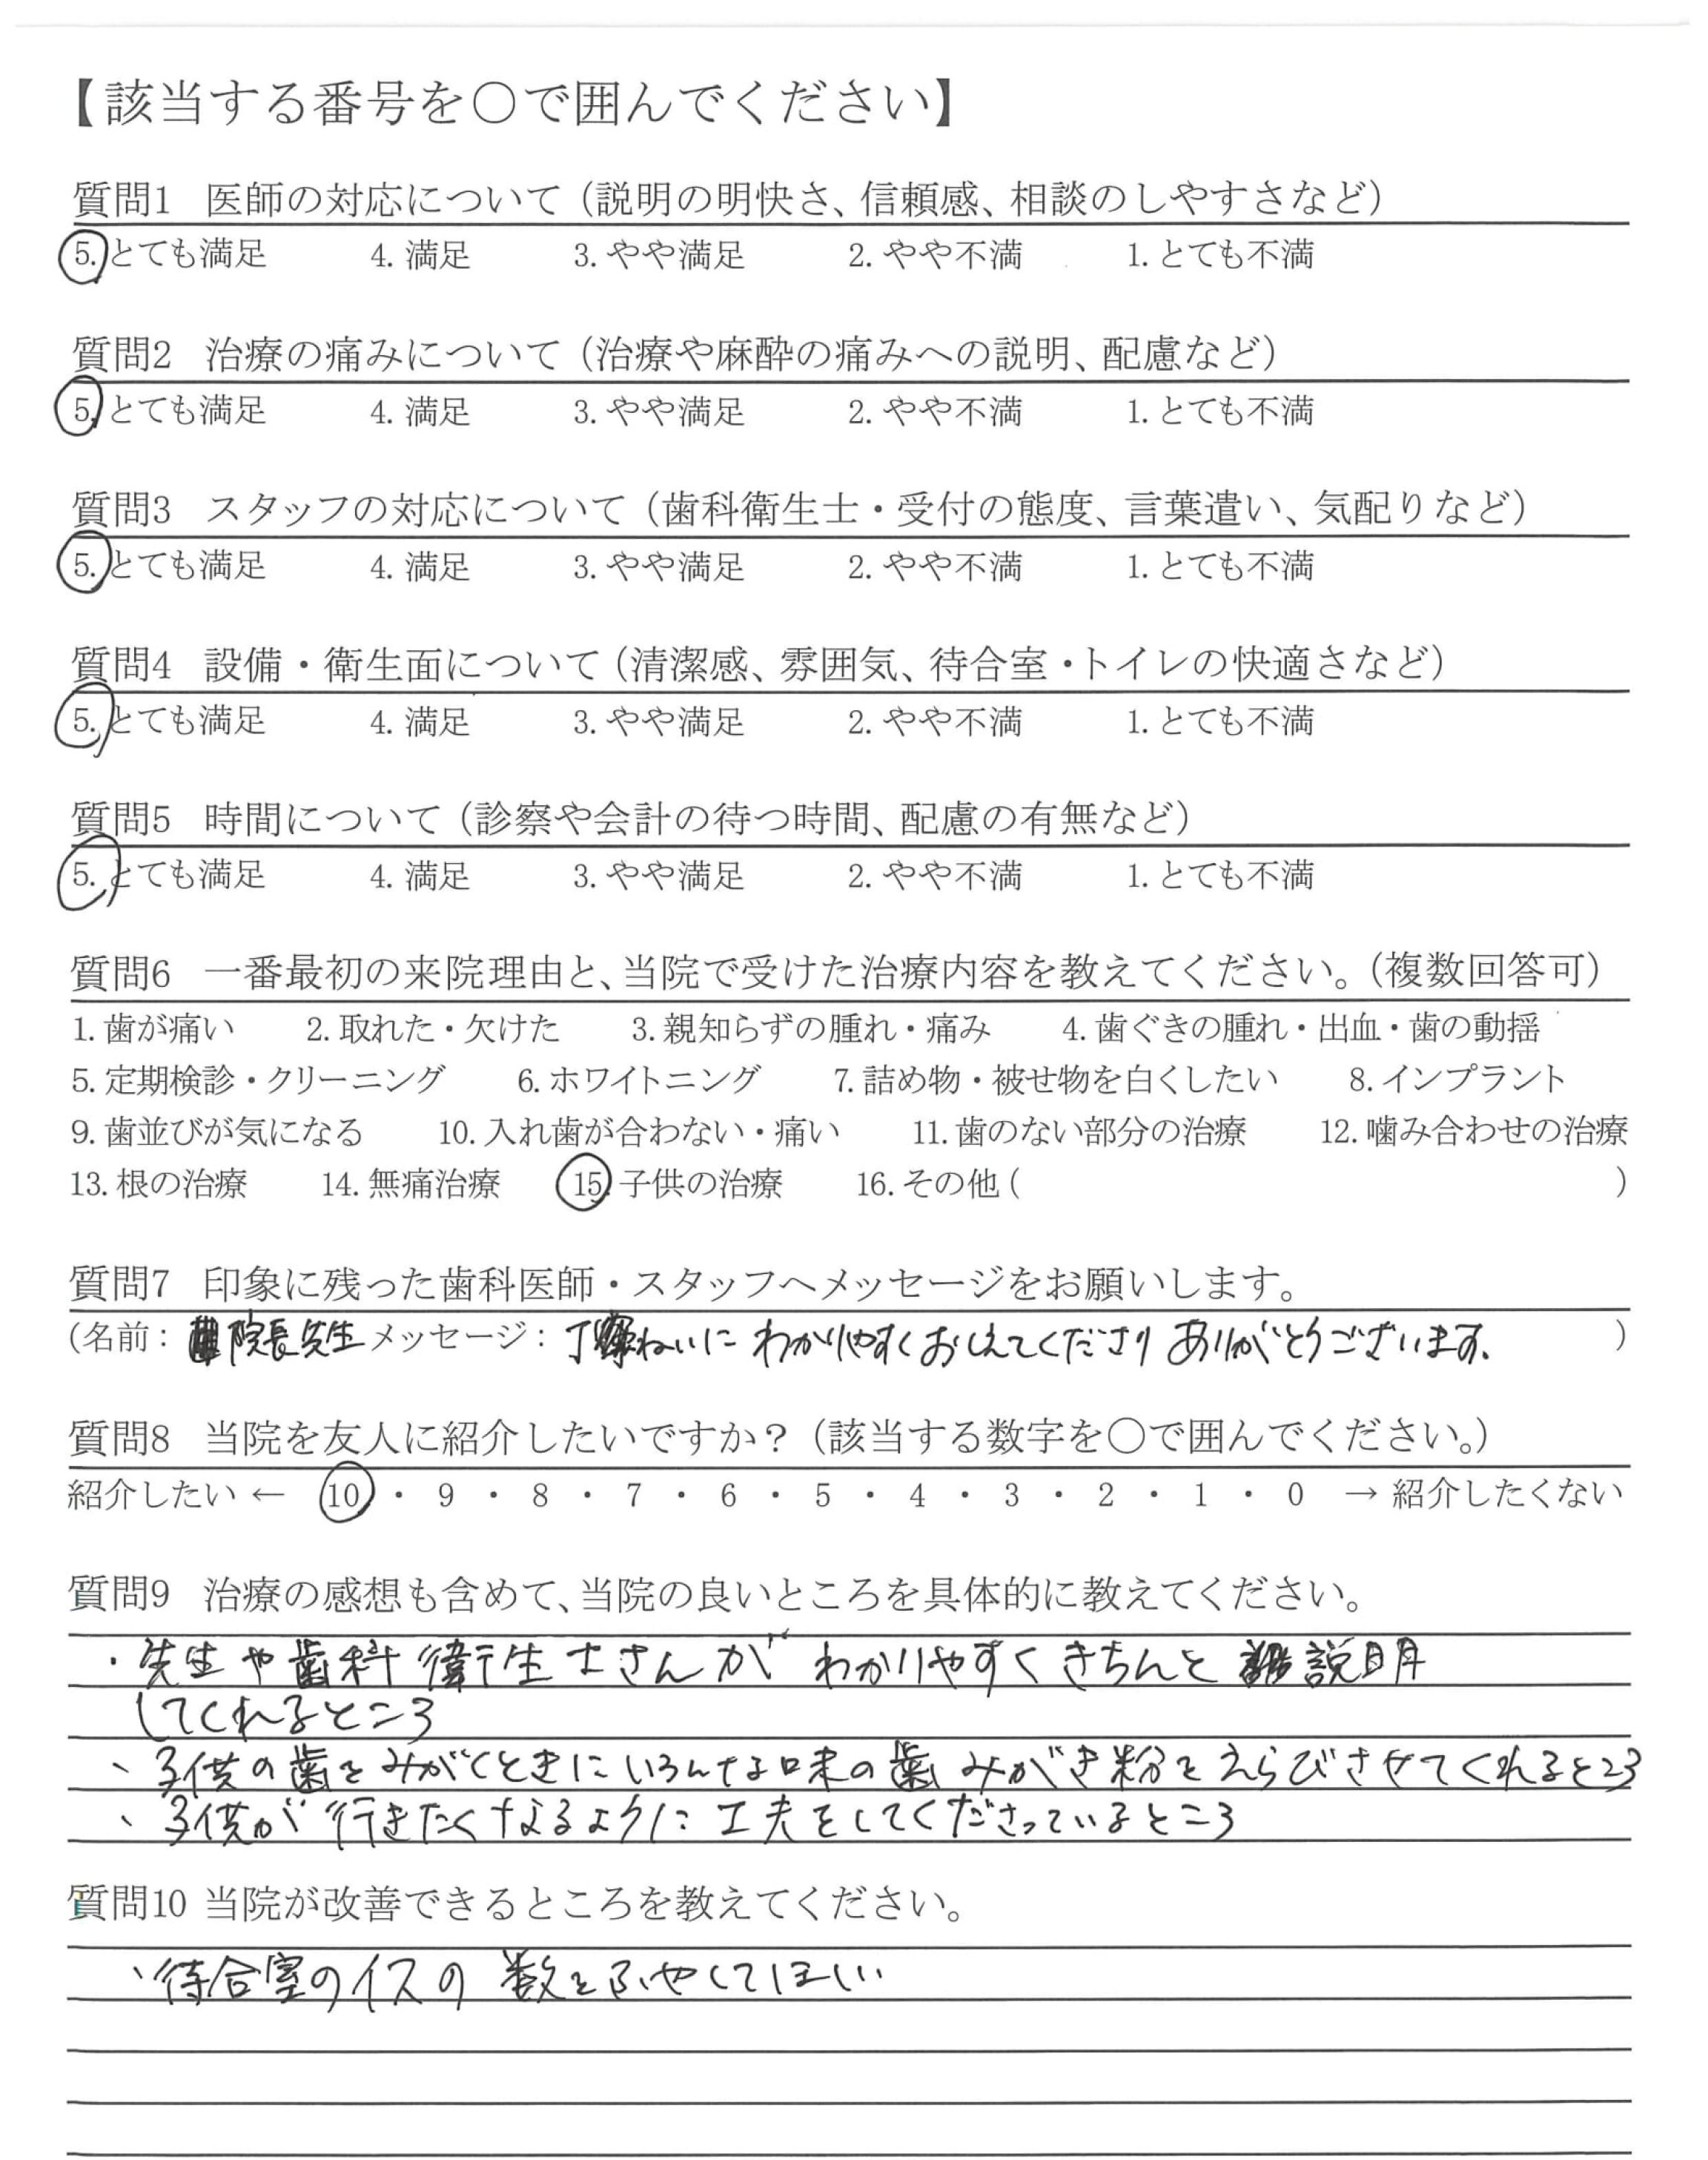 【該当する番号を○で囲んでください】
質問1 医師の対応について（説明の明快さ、信頼感、相談のしやすさなど）
5. とても満足 4. 満足 3. やや満足 2. やや不満 1. とても不満
質問2 治療の痛みについて（治療や麻酔の痛みへの説明、配慮など）
5. とても満足 4. 満足 3. やや満足 2. やや不満 1. とても不満
質問3 スタッフの対応について（歯科衛生士・受付の態度、言葉遣い、気配りなど）
5. とても満足 4. 満足 3. やや満足 2. やや不満 1. とても不満
質問4 設備・衛生面について（清潔感、雰囲気、待合室・トイレの快適さなど）
5. とても満足 4. 満足 3. やや満足 2. やや不満 1. とても不満
質問5 時間について（診察や会計の待つ時間、配慮の有無など）
5. とても満足 4. 満足 3. やや満足 2. やや不満 1. とても不満
質問6 一番最初の来院理由と、当院で受けた治療内容を教えてください。（複数回答可）
1. 歯が痛い 2. 取れた・欠けた 3. 親知らずの腫れ・痛み 4. 歯ぐきの腫れ・出血・歯の動揺
5. 定期検診・クリーニング 6. ホワイトニング 7. 詰め物・被せ物を白くしたい 8. インプラント
9. 歯並びが気になる 10. 入れ歯が合わない・痛い 11. 歯のない部分の治療 12. 噛み合わせの治療
13. 根の治療 14. 無痛治療 15. 子供の治療 16. その他 ( )
質問7 印象に残った歯科医師・スタッフへメッセージをお願いします。
(名前： 院長先生 メッセージ： 丁ねいに わかりやすくおしえてくださり ありがとうございます。 )
質問8 当院を友人に紹介したいですか？（該当する数字を○で囲んでください。）
紹介したい ← 10 ・ 9 ・ 8 ・ 7 ・ 6 ・ 5 ・ 4 ・ 3 ・ 2 ・ 1 ・ 0 → 紹介したくない
質問9 治療の感想も含めて、当院の良いところを具体的に教えてください。
・先生や歯科衛生士さんが わかりやすくきちんと 説明
してくれるところ
、子供の歯をみがくときにいろんな味の歯みがき粉をえらびさせてくれるところ
、子供が行きたくなるように工夫をしてくださっているところ
質問10 当院が改善できるところを教えてください。
、待合室のイスの 数をふやしてほしい